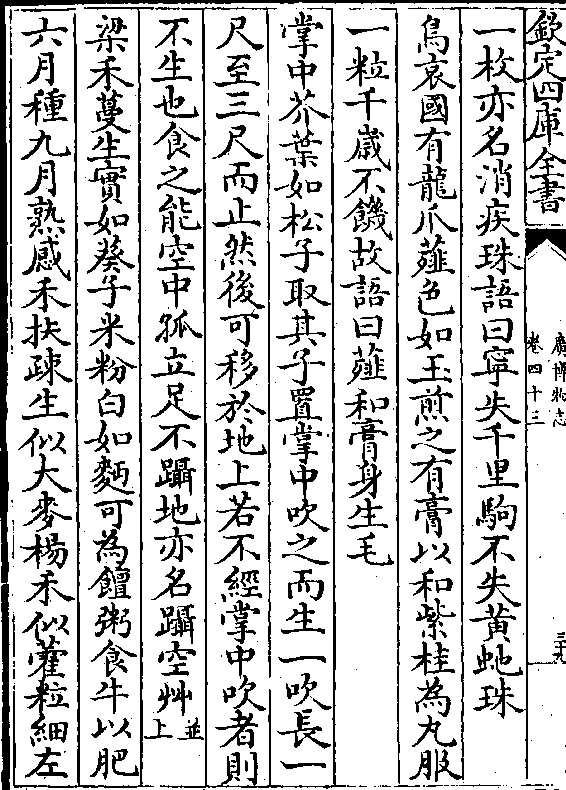 欽定四庫全書
廣博物志
卷四十三
三十九
一枚亦名消疾珠語曰寧失千里駒不失黃虵珠
烏哀國有龍爪薤色如玉煎之有膏以和紫桂為丸服
一粒千歲不饑故語曰薤和膏身生毛
掌中芥葉如松子取其子置掌中吹之而生一吹長一
尺至三尺而止然後可移於地上若不經掌中吹者則
不生也食之能空中孤立足不躡地亦名躡空艸並上
梁禾蔓生實如葵子米粉白如麪可為饘粥食牛以肥
六月種九月熟感禾扶疎生似大麥楊禾似藿粒細左